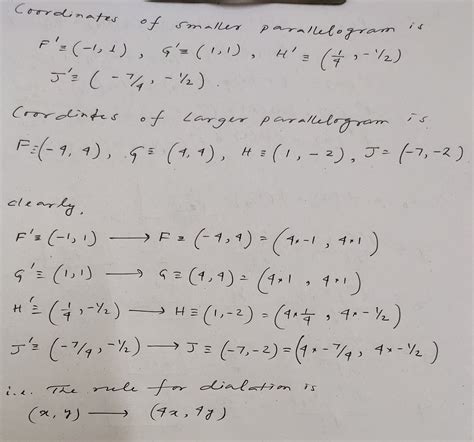 Coordinates of smaller parallelogram is
F' ≡ (-1, 1) , G' ≡ (1, 1) , H' ≡ (1/4 , -1/2)
J' ≡ ( -7/4 , -1/2 ) .
Coordintes of Larger parallelogram is
F ≡ (-4, 4) , G ≡ (4, 4) , H ≡ (1, -2) , J = (-7, -2)
clearly,
F' ≡ (-1, 1) → F ≡ (-4, 4) = (4×-1 , 4×1)
G' ≡ (1, 1) → G ≡ (4, 4) = (4×1 , 4×1)
H' ≡ (1/4 , -1/2) → H ≡ (1, -2) = (4×1/4 , 4×-1/2)
J' ≡ (-7/4 , -1/2) → J ≡ (-7, -2) = (4×-7/4 , 4×-1/2)
i.e. The rule for dialation is
(x, y) → (4x, 4y)